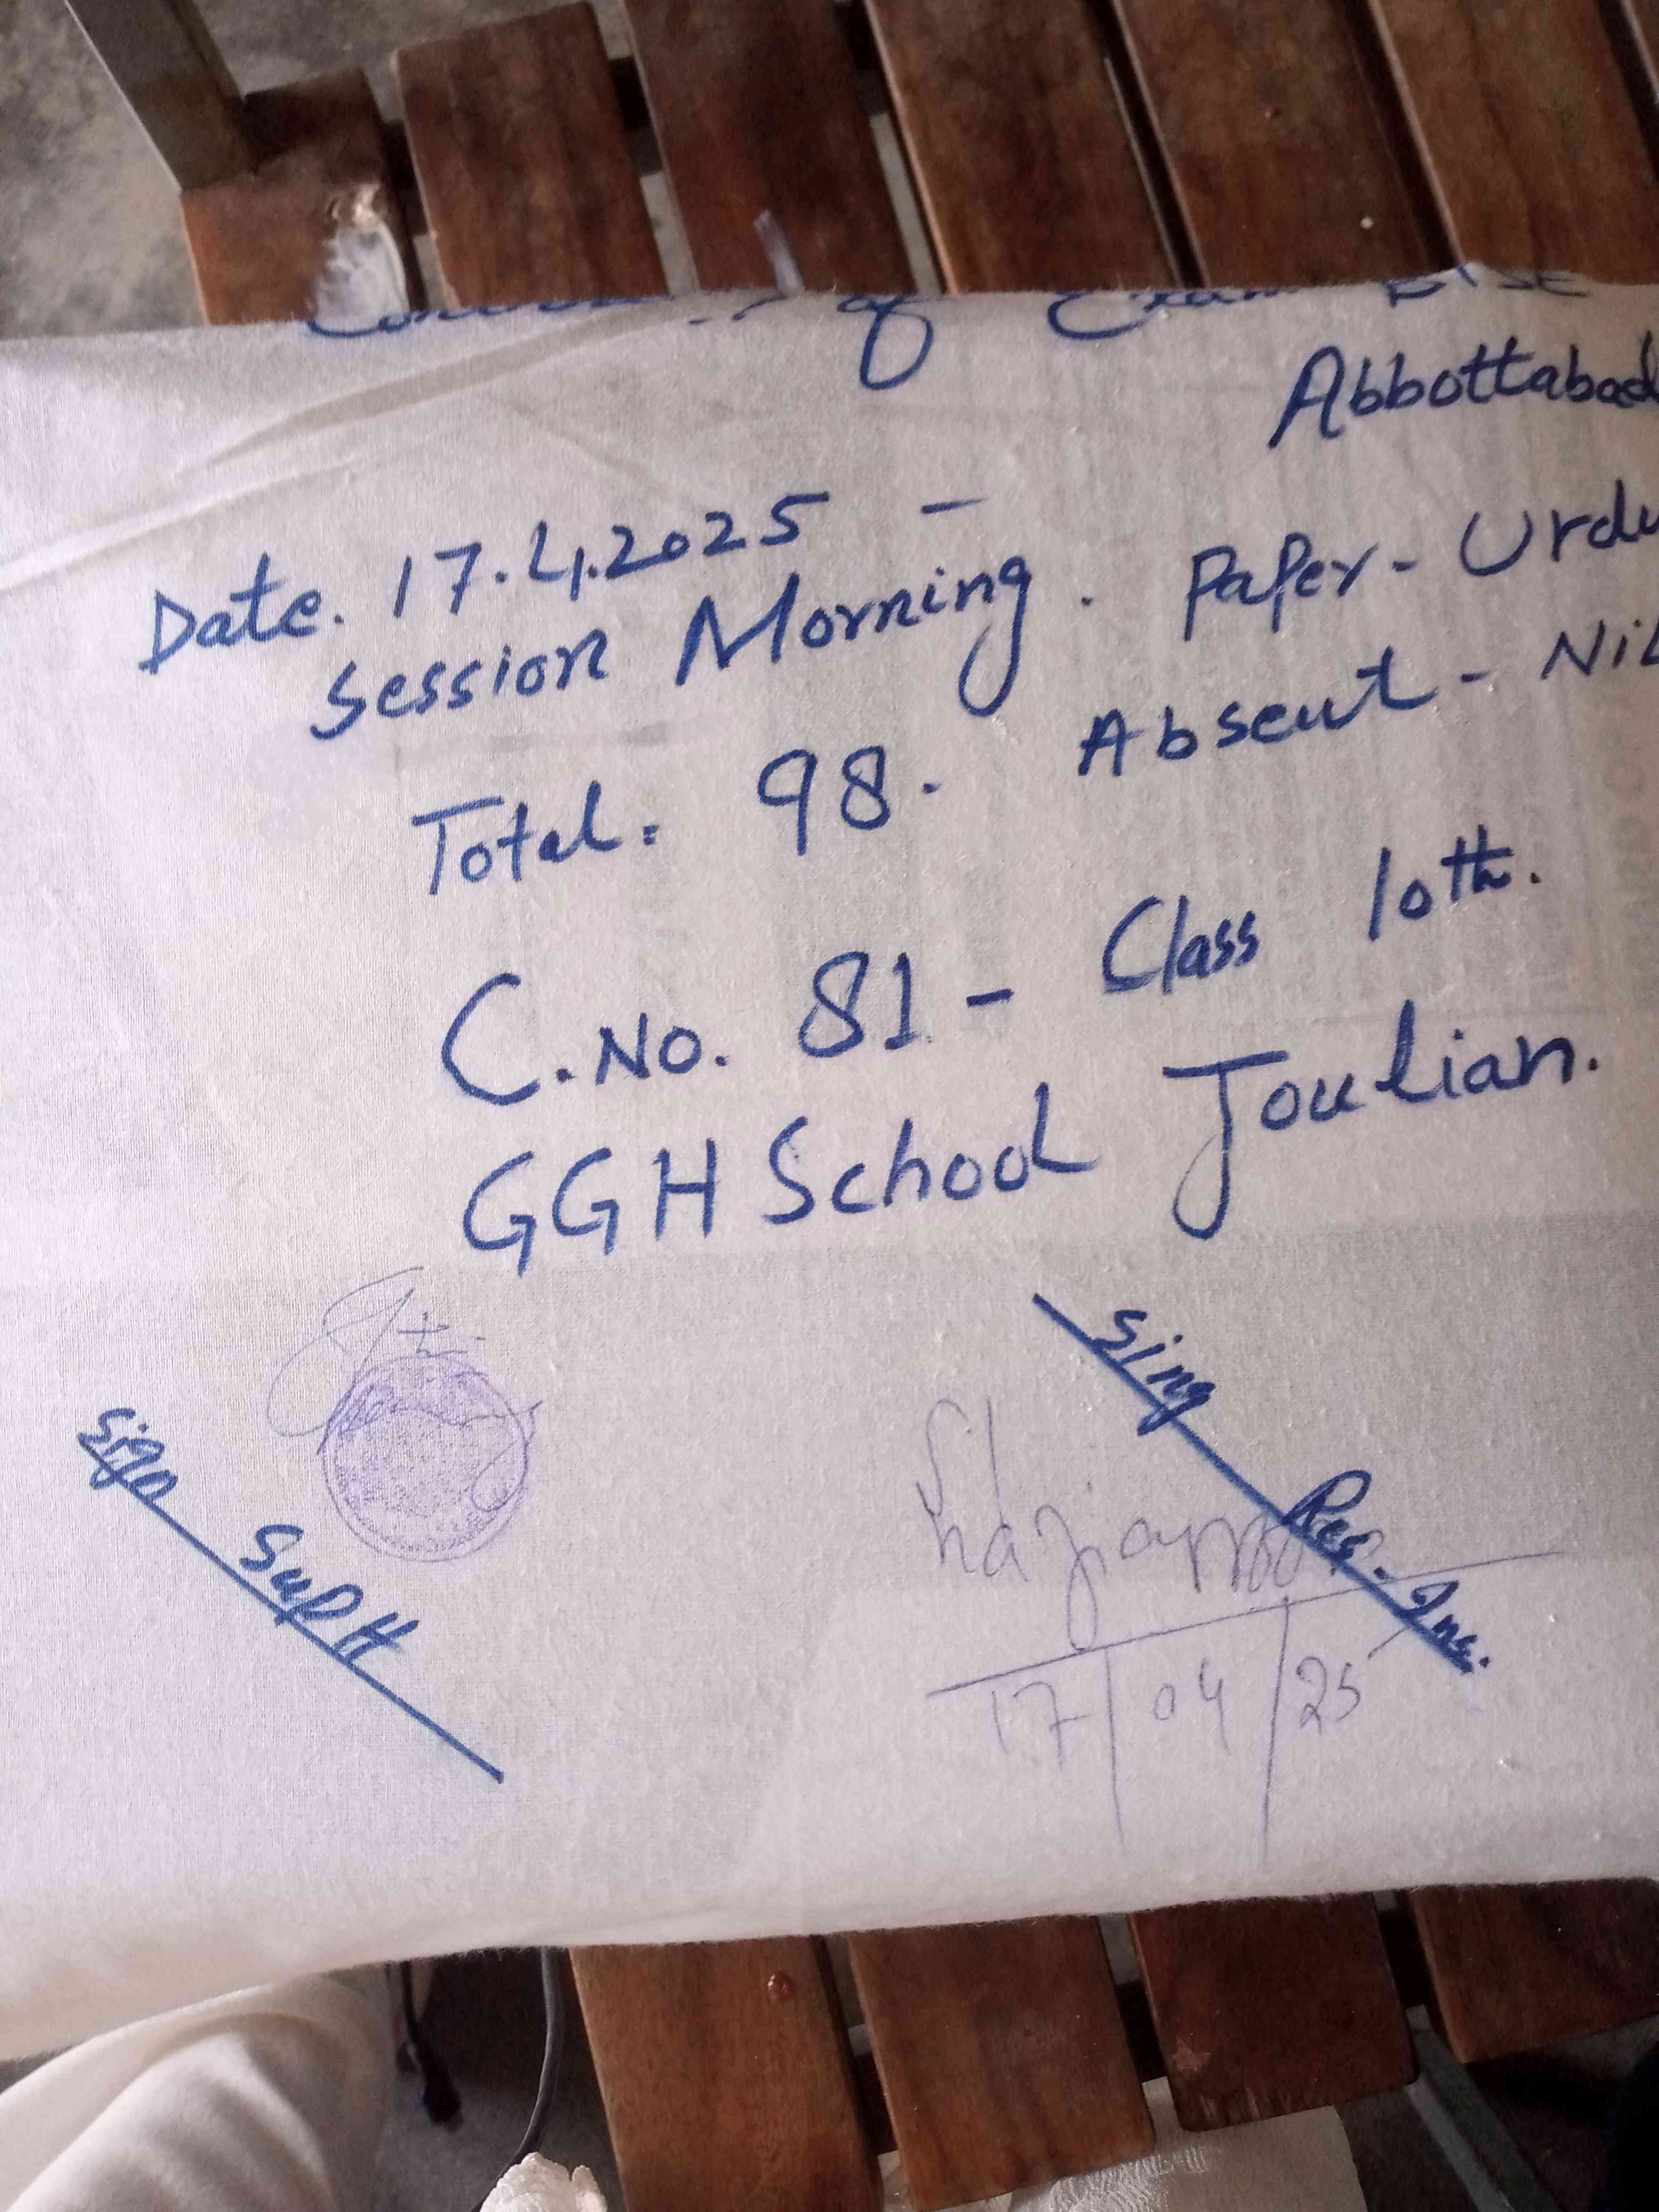 of Exam
Abbottabad
Date. 17.4.2025 -
Session Morning. Paper - Urdu
Total: 98. Absent - Nil
C.No. 81 - Class 10th.
GGH School Joulian.
Sign Supdt
Sing Res. Ins.
17/04/25